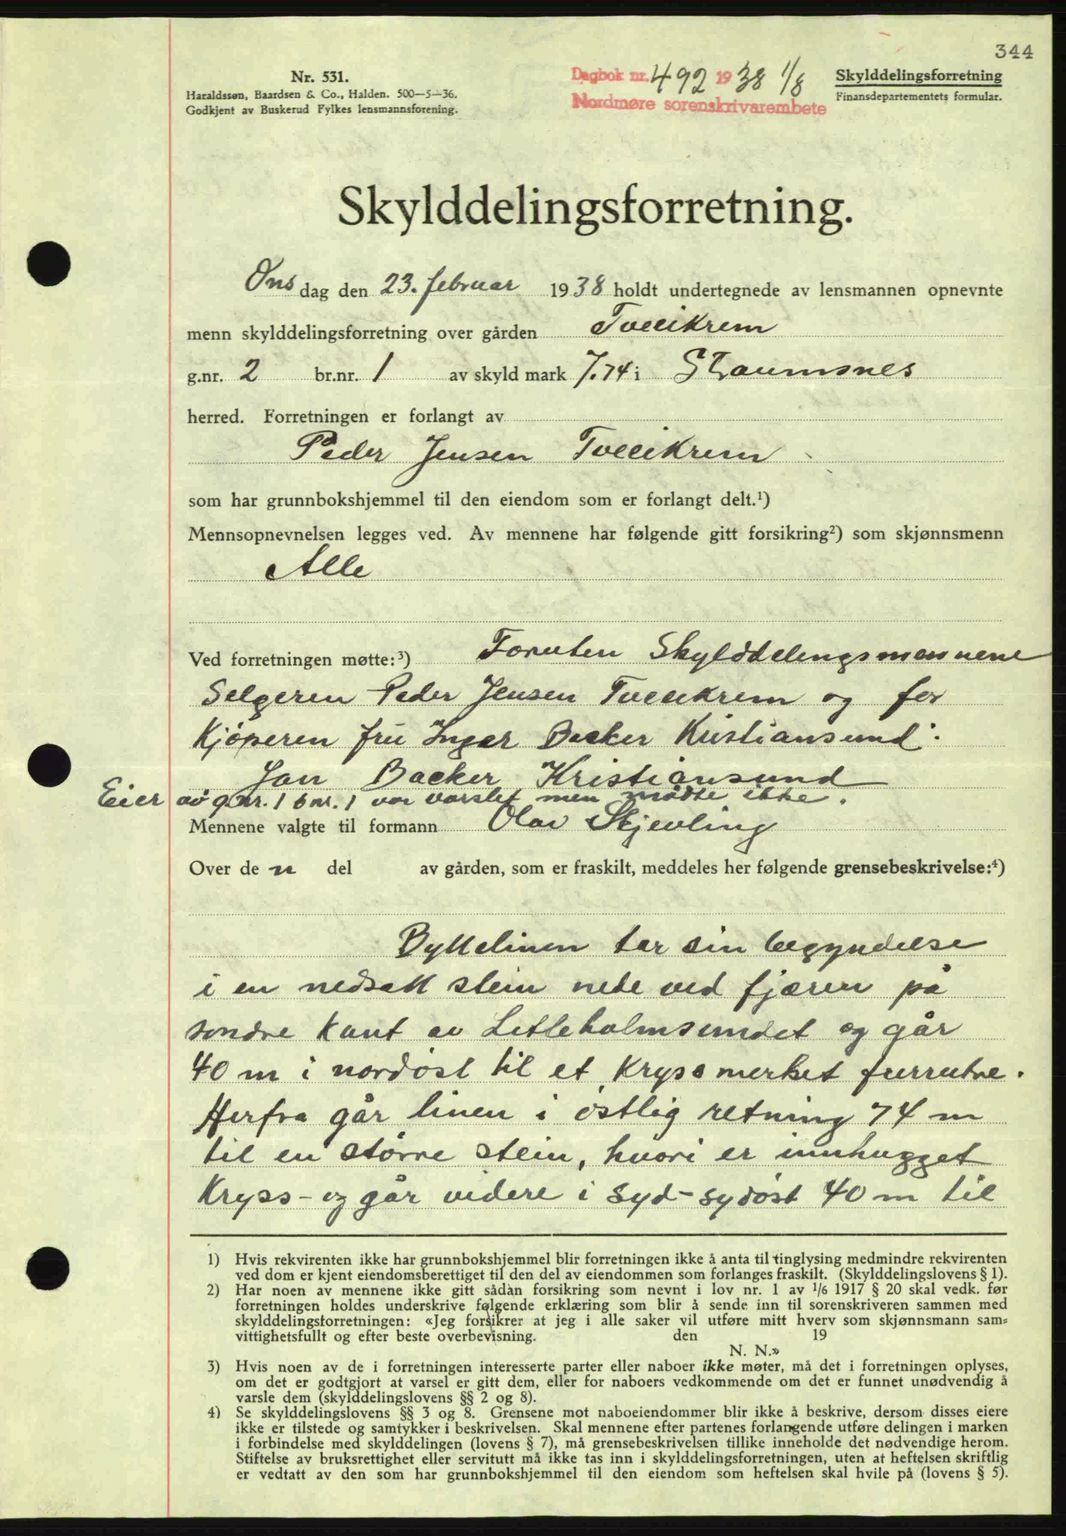 344
Nr. 531.
Haraldssøn, Baardsen & Co., Halden. 500—5—36.
Godkjent av Buskerud Fylkes lensmannsforening.
Dagbok nr. 492 1938 1/8
Nordmøre sorenskrivarembete
Skylddelingsforretning
Finansdepartementets formular.
Skylddelingsforretning.
Ons dag den 23. februar 1938 holdt undertegnede av lensmannen opnevnte
menn skylddelingsforretning over gården Tveeikrem
g.nr. 2 br.nr. 1 av skyld mark 7.74 i Straumsnes
herred. Forretningen er forlangt av
Peder Jensen Tveeikrem
som har grunnbokshjemmel til den eiendom som er forlangt delt.¹)
Mennsopnevnelsen legges ved. Av mennene har følgende gitt forsikring²) som skjønnsmenn
Alle
Ved forretningen møtte:³) Foruten Skylddelingsmennene
Selgeren Peder Jensen Tveeikrem og for
Kjøperen fru Inger Backer Kristiansund:
Jan Backer Kristiansund
Eier av g.nr. 1 b.nr. 1 var varslet men møtte ikke.
Mennene valgte til formann Olav Skjevling
Over de n del av gården, som er fraskilt, meddeles her følgende grensebeskrivelse:⁴)
Byttelinen tar sin begyndelse
i en nedsatt stein nede ved fjæren på
søndre kant av Litleholmsundet og går
40 m i nordøst til et kryssmerket furrutre.
Herfra går linen i østlig retning 74 m
til en større stein, hvori er innhugget
Kryss - og går videre i syd-sydøst 40 m til
1) Hvis rekvirenten ikke har grunnbokshjemmel blir forretningen ikke å anta til tinglysing medmindre rekvirenten
ved dom er kjent eiendomsberettiget til den del av eiendommen som forlanges fraskilt. (Skylddelingslovens § 1).
2) Har noen av mennene ikke gitt sådan forsikring som nevnt i lov nr. 1 av 1/6 1917 § 20 skal vedk. før
forretningen holdes underskrive følgende erklæring som blir å sende inn til sorenskriveren sammen med
skylddelingsforretningen: «Jeg forsikrer at jeg i alle saker vil utføre mitt hverv som skjønnsmann sam=
vittighetsfullt og efter beste overbevisning. den 19
N. N.»
3) Hvis noen av de i forretningen interesserte parter eller naboer ikke møter, må det i forretningen oplyses,
om det er godtgjort at varsel er gitt dem, eller for naboers vedkommende om det er funnet unødvendig å
varsle dem (skylddelingslovens §§ 2 og 8).
4) Se skylddelingslovens §§ 3 og 8. Grensene mot naboeiendommer blir ikke å beskrive, dersom disses eiere
ikke er tilstede og samtykker i beskrivelsen. Skal mennene efter partenes forlangende utføre delingen i marken
i forbindelse med skylddelingen (lovens § 7), må grensebeskrivelsen tillike inneholde det nødvendige herom.
Stiftelse av bruksrettighet eller servitutt må ikke tas inn i skylddelingsforretningen, uten at heftelsen skriftlig
er vedtatt av den som har grunnbokshjemmel til den eiendom som heftelsen skal hvile på (lovens § 5).